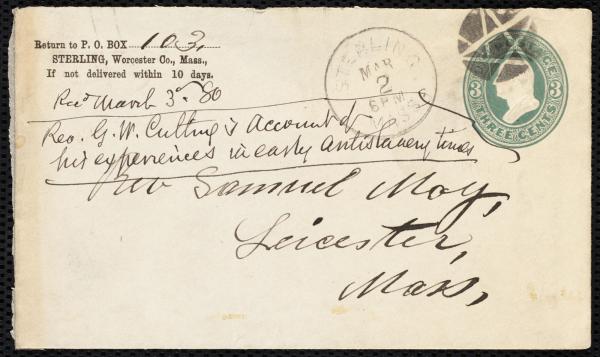 Return to P. O. BOX 103,
STERLING, Worcester Co., Mass.,
If not delivered within 10 days.
STERLING,
MAR
2
6 PM
MASS
THREE CENTS
3 3
Recd March 3d 80
Rev. G. W. Cutting's Account of
his experiences in early Antislavery times
Rev Samuel May,
Leicester,
Mass,